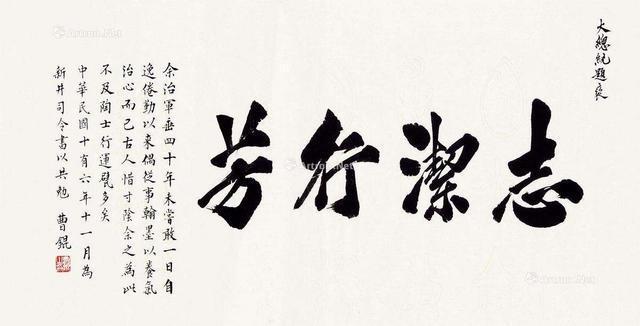 大總統題褒
志潔行芳
余治軍垂四十年未嘗敢一日自
逸倦勤以來偶從事翰墨以養氣
治心而已古人惜寸陰余之為此
不及陶士行運甓多矣
中華民國十有六年十一月為
新井司令書以共勉 曹錕
Artron.Net
Artron.Net
Artron.Net